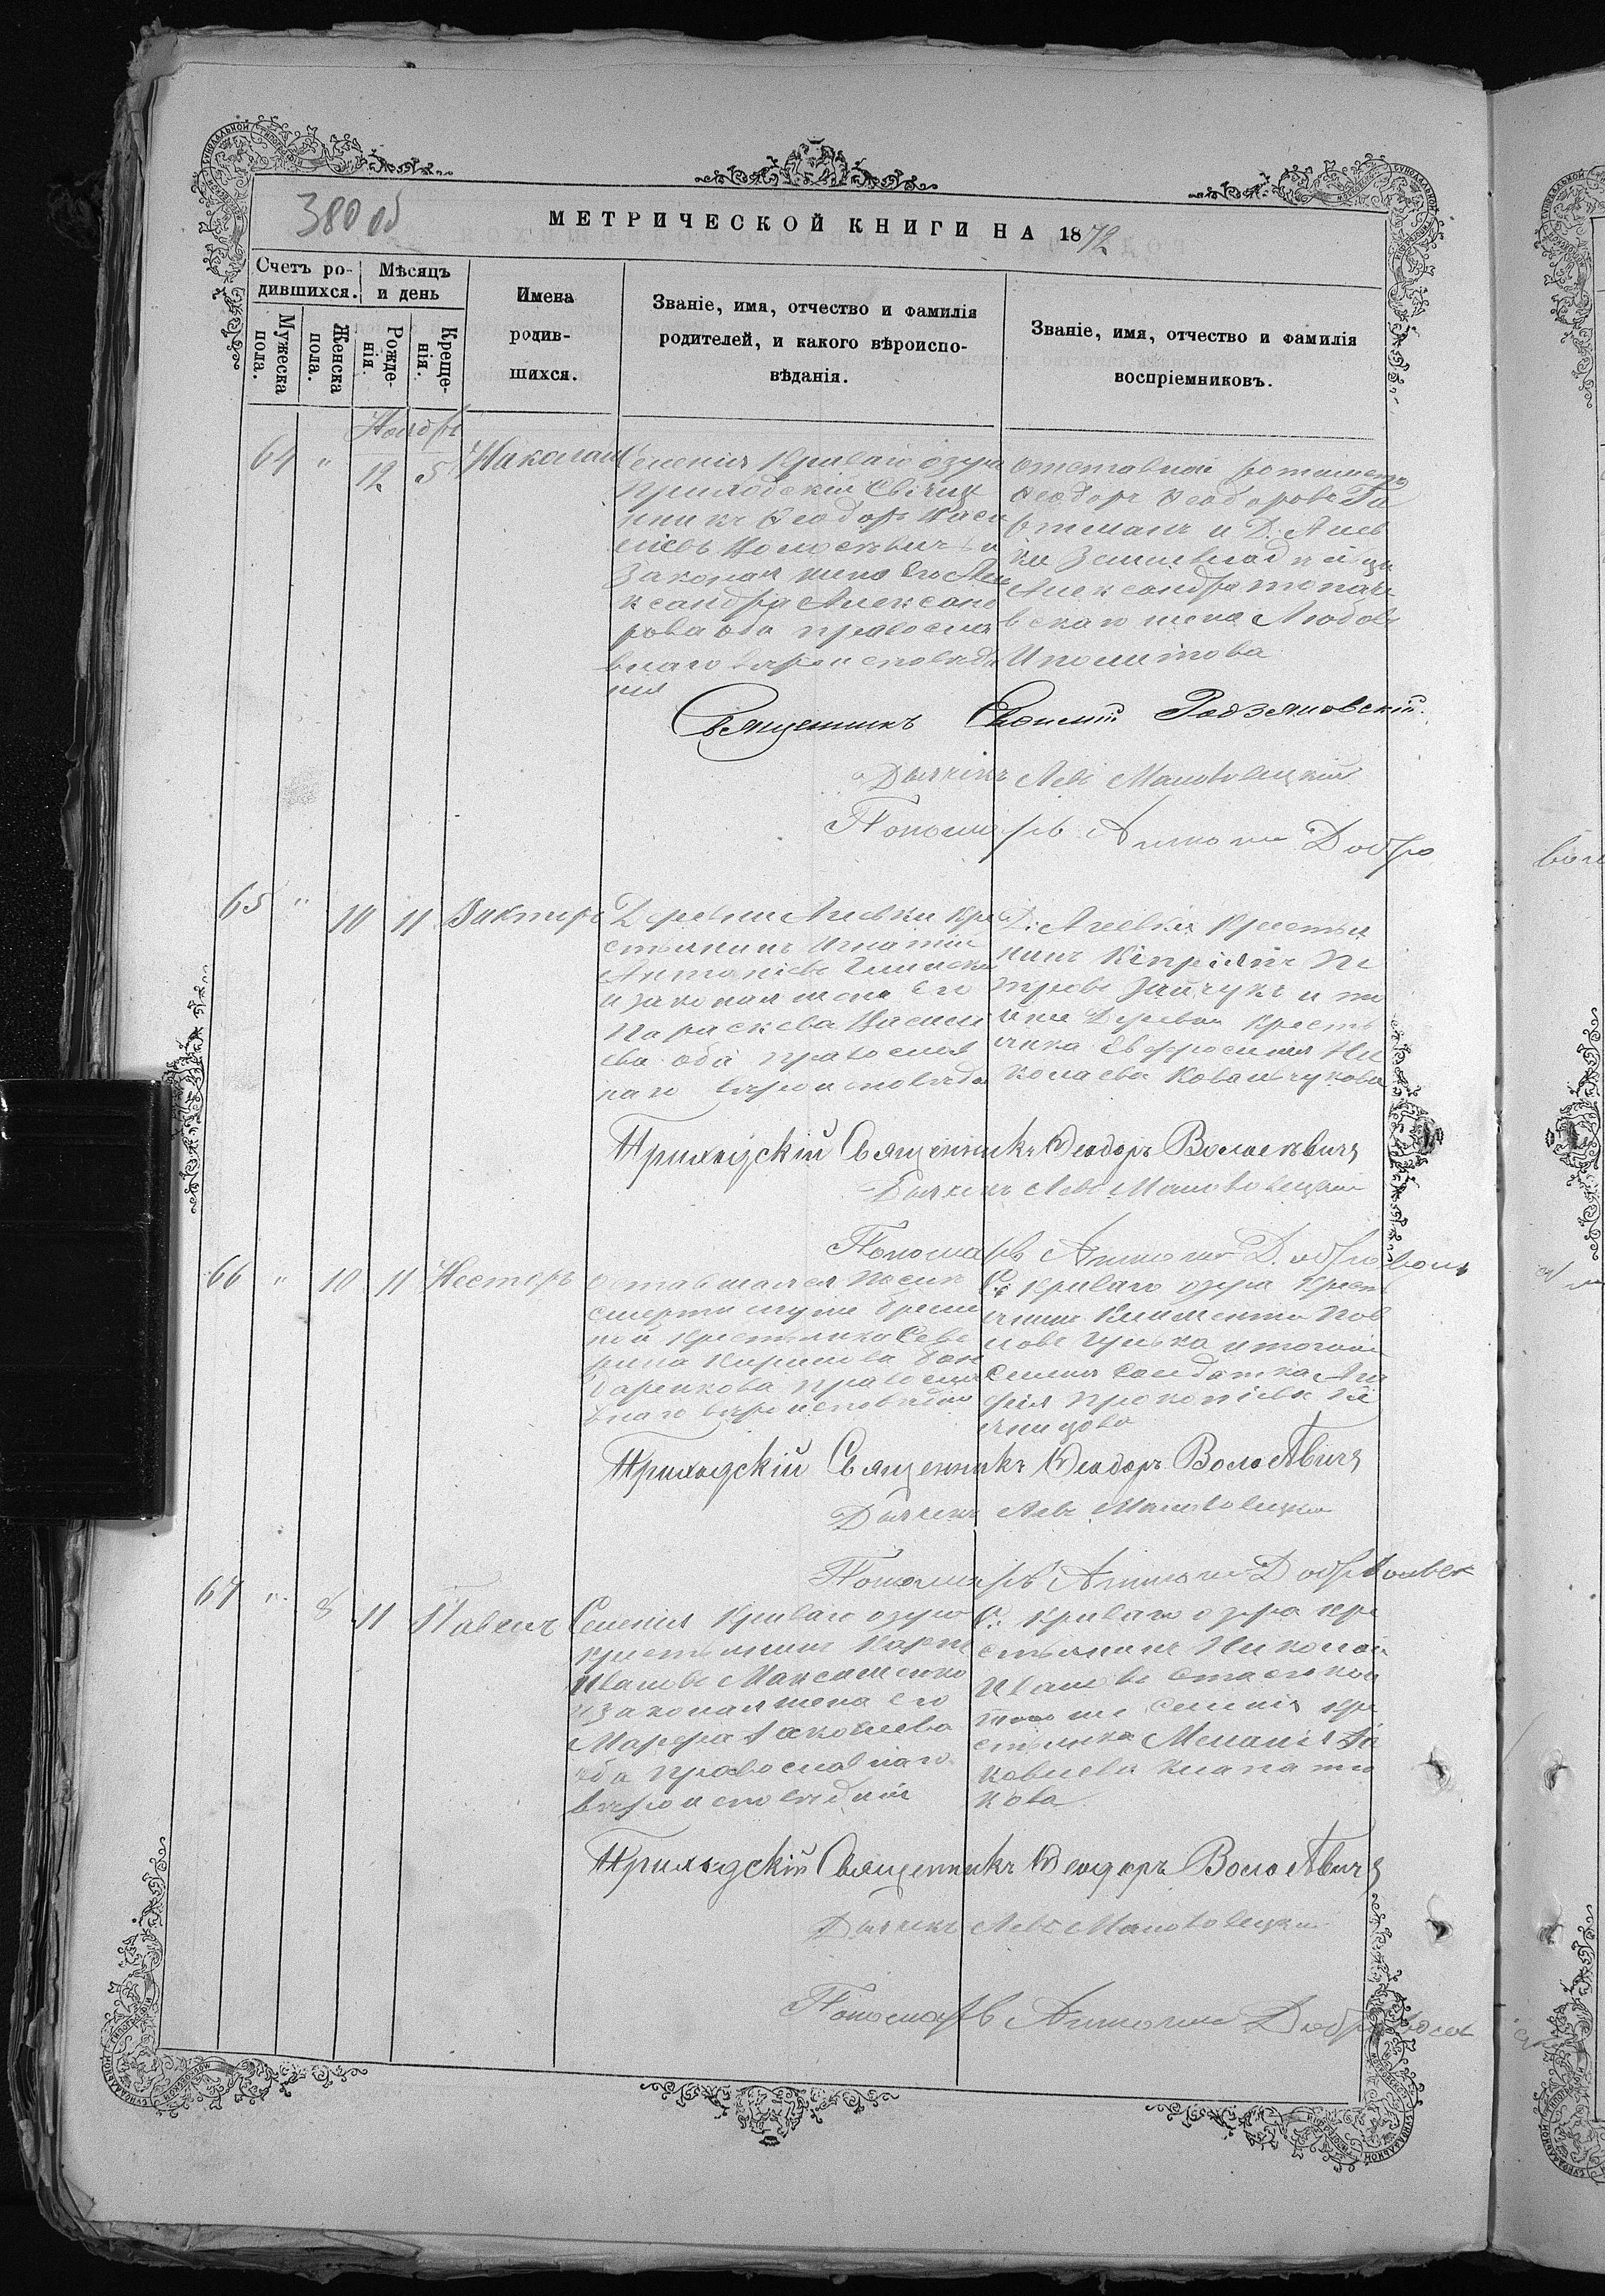 380 об
МЕТРИЧЕСКОЙ КНИГИ НА 1872
Счетъ ро-
дившихся.
Мѣсяцъ
и день
Мужеска
пола.
Женска
пола.
Рожде-
нія.
Креще-
нія.
Имена
родив-
шихся.
Званіе, имя, отчество и фамилія
родителей, и какого вѣроиспо-
вѣданія.
Званіе, имя, отчество и фамилія
воспріемниковъ.
Ноября
64 " 12 5 Николай
Селенія Криваго озера
Приходскій Свяще
нникъ Ѳеодоръ Васи
ліевъ Волосѣвичъ и
Законая жена Его Але
ксандра Александ
рова оба православ
внаго вѣроисповѣда
нія
отставной ротмистръ
Ѳеодоръ Ѳеодоровъ
и Д: Лиев
ки
Александра
жена Любовь
Иполитова
Священникъ Родзяновскій
Дьячекъ Левъ Маньковецкій
Пономарь Антоній Добро
65 " 10 11 Викторъ
Деревни Лиевки Кре
стьянинъ Игнатій
Антоніевъ
и законая жена Его
Параскева Василі
ева оба православ
наго вѣроисповѣда
Д: Лиевки Крестья
нинъ Кіпріянъ Пе
тровъ Зайчукъ и то
йже Деревни Кресть
янка Евфросинія Ни
колаева Ковальчукова
Приходскій Священникъ Ѳеодоръ Волосѣвичъ
Дьячекъ Левъ Маньковецкій
Пономарь Антоній Доброволь
66 " 10 11 Несторъ
Оставшаяся Послѣ
смерти мужа береме
ной Крестьянка Севе
рина Кирилова Бон
даренкова православ
внаго вѣроисповѣданія
С: Криваго озера Крест
янинъ Климентъ Пав
ловъ и тогоже
Селенія Солдатка Ага
фія Прокопіева
Приходскій Священникъ Ѳеодоръ Волосѣвичъ
Дьячекъ Левъ Маньковецкій
Пономарь Антоній Доброволск
67 " 8 11 Павелъ
Селенія Криваго озера
Крестьянинъ Карпъ
Ивановъ Максименко
и законая жена его
Марфа Яковлева
оба православнаго
вѣроисповѣданія
С: Криваго озера кре
стьянинъ Николай
Ивановъ
тогоже Селенія кре
стьянка Меланія Яа
ковлева
кова
Приходскій Священникъ Ѳеодоръ Волосѣвичъ
Дьячекъ Левъ Маньковецкій
Пономарь Антоній Доброволс